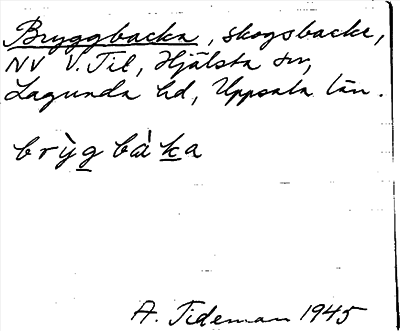 Bryggbacka, skogsbacke,
NV V. Til, Hjälsta sn,
Lagunda hd, Uppsala län.
brỳg bàka
A. Tideman 1945